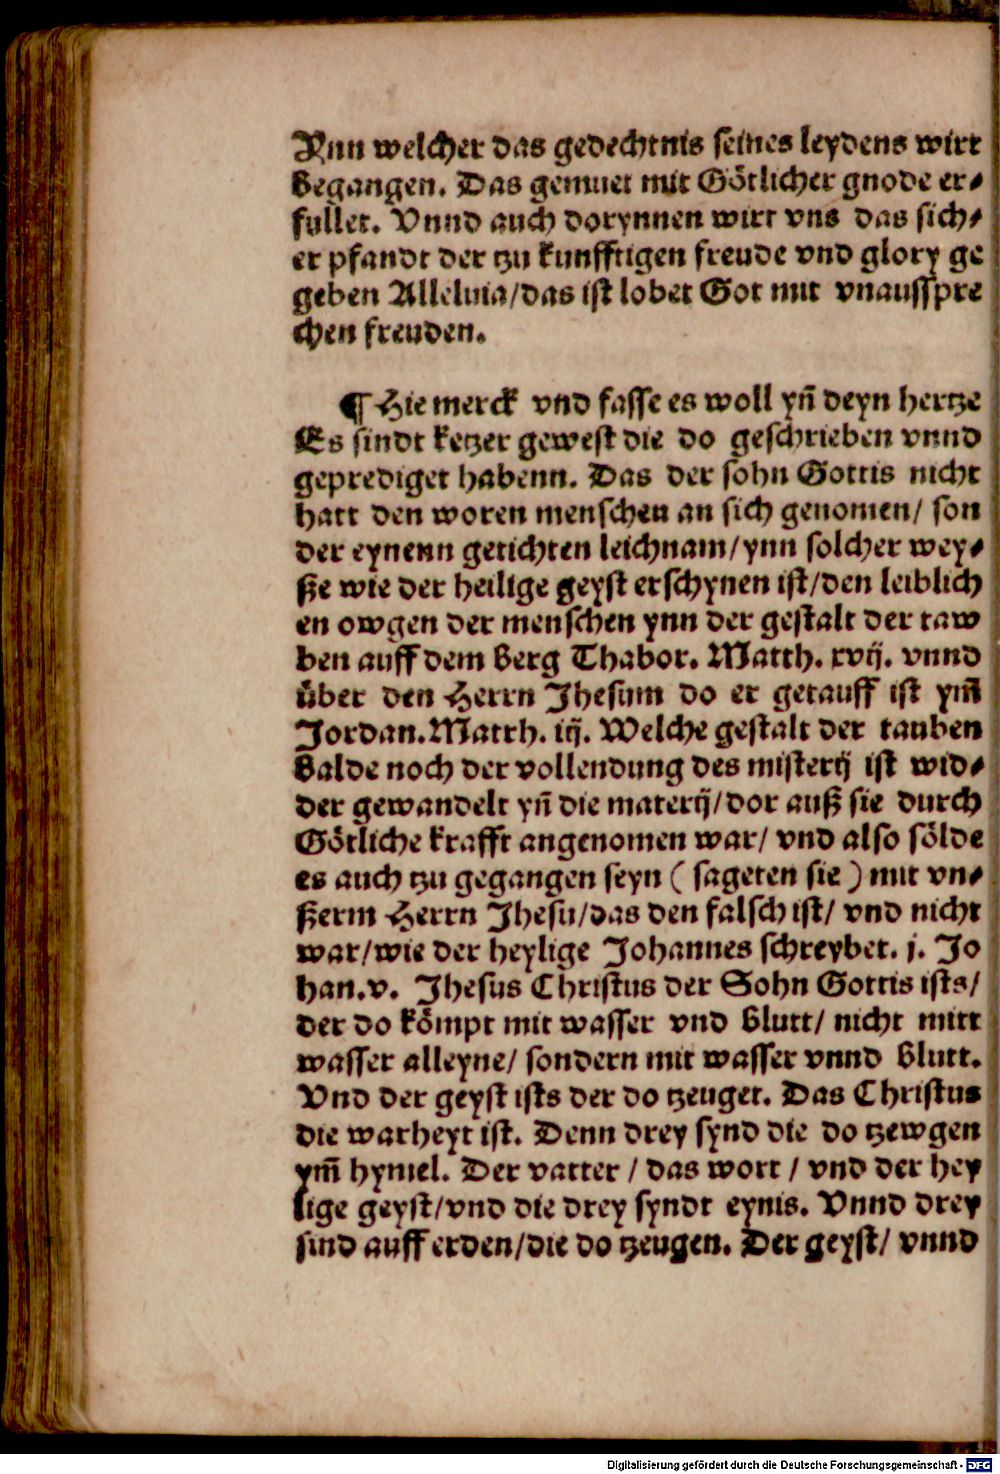 Nun welcher das gedechtnis seines leydens wirt
begangen. Das gemuet mit Götlicher gnode er⸗
fullet. Vnnd auch dorynnen wirt vns das sich⸗
er pfandt der tzu kunfftigen freude vnd glory ge
geben Alleluia/das ist lobet Got mit vnausspre
chen freuden.
¶ Hie merck vnd fasse es woll yñ deyn hertze
Es sindt ketzer gewest die do geschrieben vnnd
geprediget habenn. Das der sohn Gottis nicht
hatt den woren menschen an sich genomen/ son
der eynenn getichten leichnam/ynn solcher wey⸗
ße wie der heilige geyst erschynen ist/den leiblich
en owgen der menschen ynn der gestalt der taw
ben auff dem berg Thabor. Matth. xvij. vnnd
über den Herrn Jhesum do er getauff ist ym̃
Jordan.Matth. iij. Welche gestalt der tauben
balde noch der vollendung des misterij ist wid⸗
der gewandelt yñ die materij/dor auß sie durch
Götliche krafft angenomen war/ vnd also sölde
es auch tzu gegangen seyn ( sageten sie ) mit vn⸗
ßerm Herrn Jhesu/das den falsch ist/ vnd nicht
war/wie der heylige Johannes schreybet. j. Jo
han.v. Jhesus Christus der Sohn Gottis ists/
der do kömpt mit wasser vnd blutt/ nicht mitt
wasser alleyne/ sondern mit wasser vnnd blutt.
Vnd der geyst ists der do tzeuget. Das Christus
die warheyt ist. Denn drey synd die do tzewgen
ym̃ hymel. Der vatter / das wort / vnd der hey
lige geyst/vnd die drey syndt eynis. Vnnd drey
sind auff erden/die do tzeugen. Der geyst/ vnnd
Digitalisierung gefördert durch die Deutsche Forschungsgemeinschaft - DFG